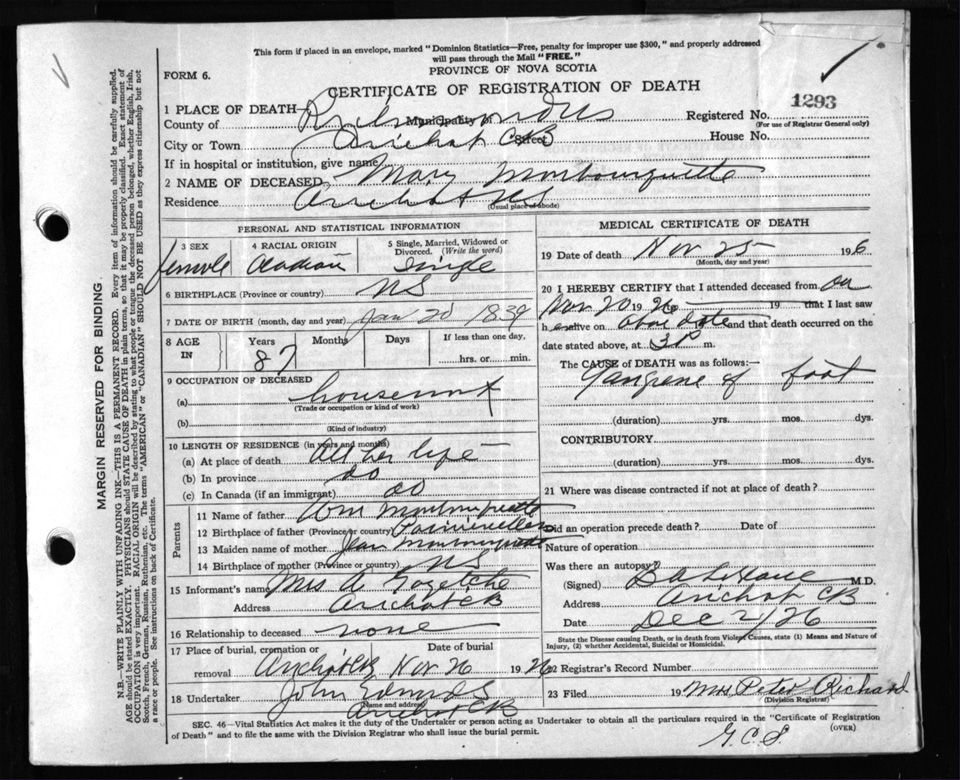 This form if placed in an envelope, marked "Dominion Statistics—Free, penalty for improper use $300," and properly addressed
will pass through the Mail "FREE."
FORM 6.
PROVINCE OF NOVA SCOTIA
CERTIFICATE OF REGISTRATION OF DEATH
1293
1 PLACE OF DEATH—
County of Richmond Municipality of Registered No.
(For use of Registrar General only)
City or Town Arichat CB Street House No.
If in hospital or institution, give name
2 NAME OF DECEASED Mary Monbourquette
Residence Arichat NS
(Usual place of abode)
PERSONAL AND STATISTICAL INFORMATION
3 SEX 4 RACIAL ORIGIN 5 Single, Married, Widowed or Divorced. (Write the word)
female Acadian Single
6 BIRTHPLACE (Province or country) NS
7 DATE OF BIRTH (month, day and year) Jan 20 1839
8 AGE IN Years Months Days If less than one day,
87 hrs. or min.
9 OCCUPATION OF DECEASED
(a) housework
(Trade or occupation or kind of work)
(b)
(Kind of industry)
10 LENGTH OF RESIDENCE (in years and months)
(a) At place of death All her life
(b) In province do
(c) In Canada (if an immigrant) do
Parents
11 Name of father Wm Monbourquette
12 Birthplace of father (Province or country)
13 Maiden name of mother Jean Monbourquette
14 Birthplace of mother (Province or country) NS
15 Informant's name Mrs A
Address Arichat CB
16 Relationship to deceased none
17 Place of burial, cremation or removal Date of burial
Arichat CB Nov 26 1926
18 Undertaker John
(Name and address)
Arichat CB
MEDICAL CERTIFICATE OF DEATH
19 Date of death Nov 25 1926
(Month, day and year)
20 I HEREBY CERTIFY that I attended deceased from on
Nov 20 1926 — 19 that I last saw
h er alive on above date and that death occurred on
date stated above, at 3 P m.
The CAUSE of DEATH was as follows:—
Gangrene of foot
(duration) yrs. mos. dys.
CONTRIBUTORY
(duration) yrs. mos. dys.
21 Where was disease contracted if not at place of death?
Did an operation precede death? Date of
Nature of operation
Was there an autopsy?
(Signed) M.D.
Address Arichat CB
Date Dec 2/26
State the Disease causing Death, or in death from Violent Causes, state (1) Means and Nature of
Injury, (2) whether Accidental, Suicidal or Homicidal.
22 Registrar's Record Number
23 Filed 19 Mrs Peter Richard
(Division Registrar)
SEC. 46—Vital Statistics Act makes it the duty of the Undertaker or person acting as Undertaker to obtain all the particulars required in the "Certificate of Registration
of Death" and to file the same with the Division Registrar who shall issue the burial permit.
(OVER)
G.C.S.
MARGIN RESERVED FOR BINDING
N.B.—WRITE PLAINLY WITH UNFADING INK—THIS IS A PERMANENT RECORD. Every item of information should be carefully supplied.
AGE should be stated EXACTLY. PHYSICIANS should STATE CAUSE OF DEATH in plain terms, so that it may be properly classified. Exact statement of
OCCUPATION is very important. RACIAL ORIGIN will be described by stating to what people or tongue the deceased person belonged, whether English, Irish,
Scotch, French, German, Russian, Ruthenian, etc. The terms "AMERICAN" or "CANADIAN" SHOULD NOT BE USED as they express citizenship but not
a race or people. See instructions on back of Certificate.